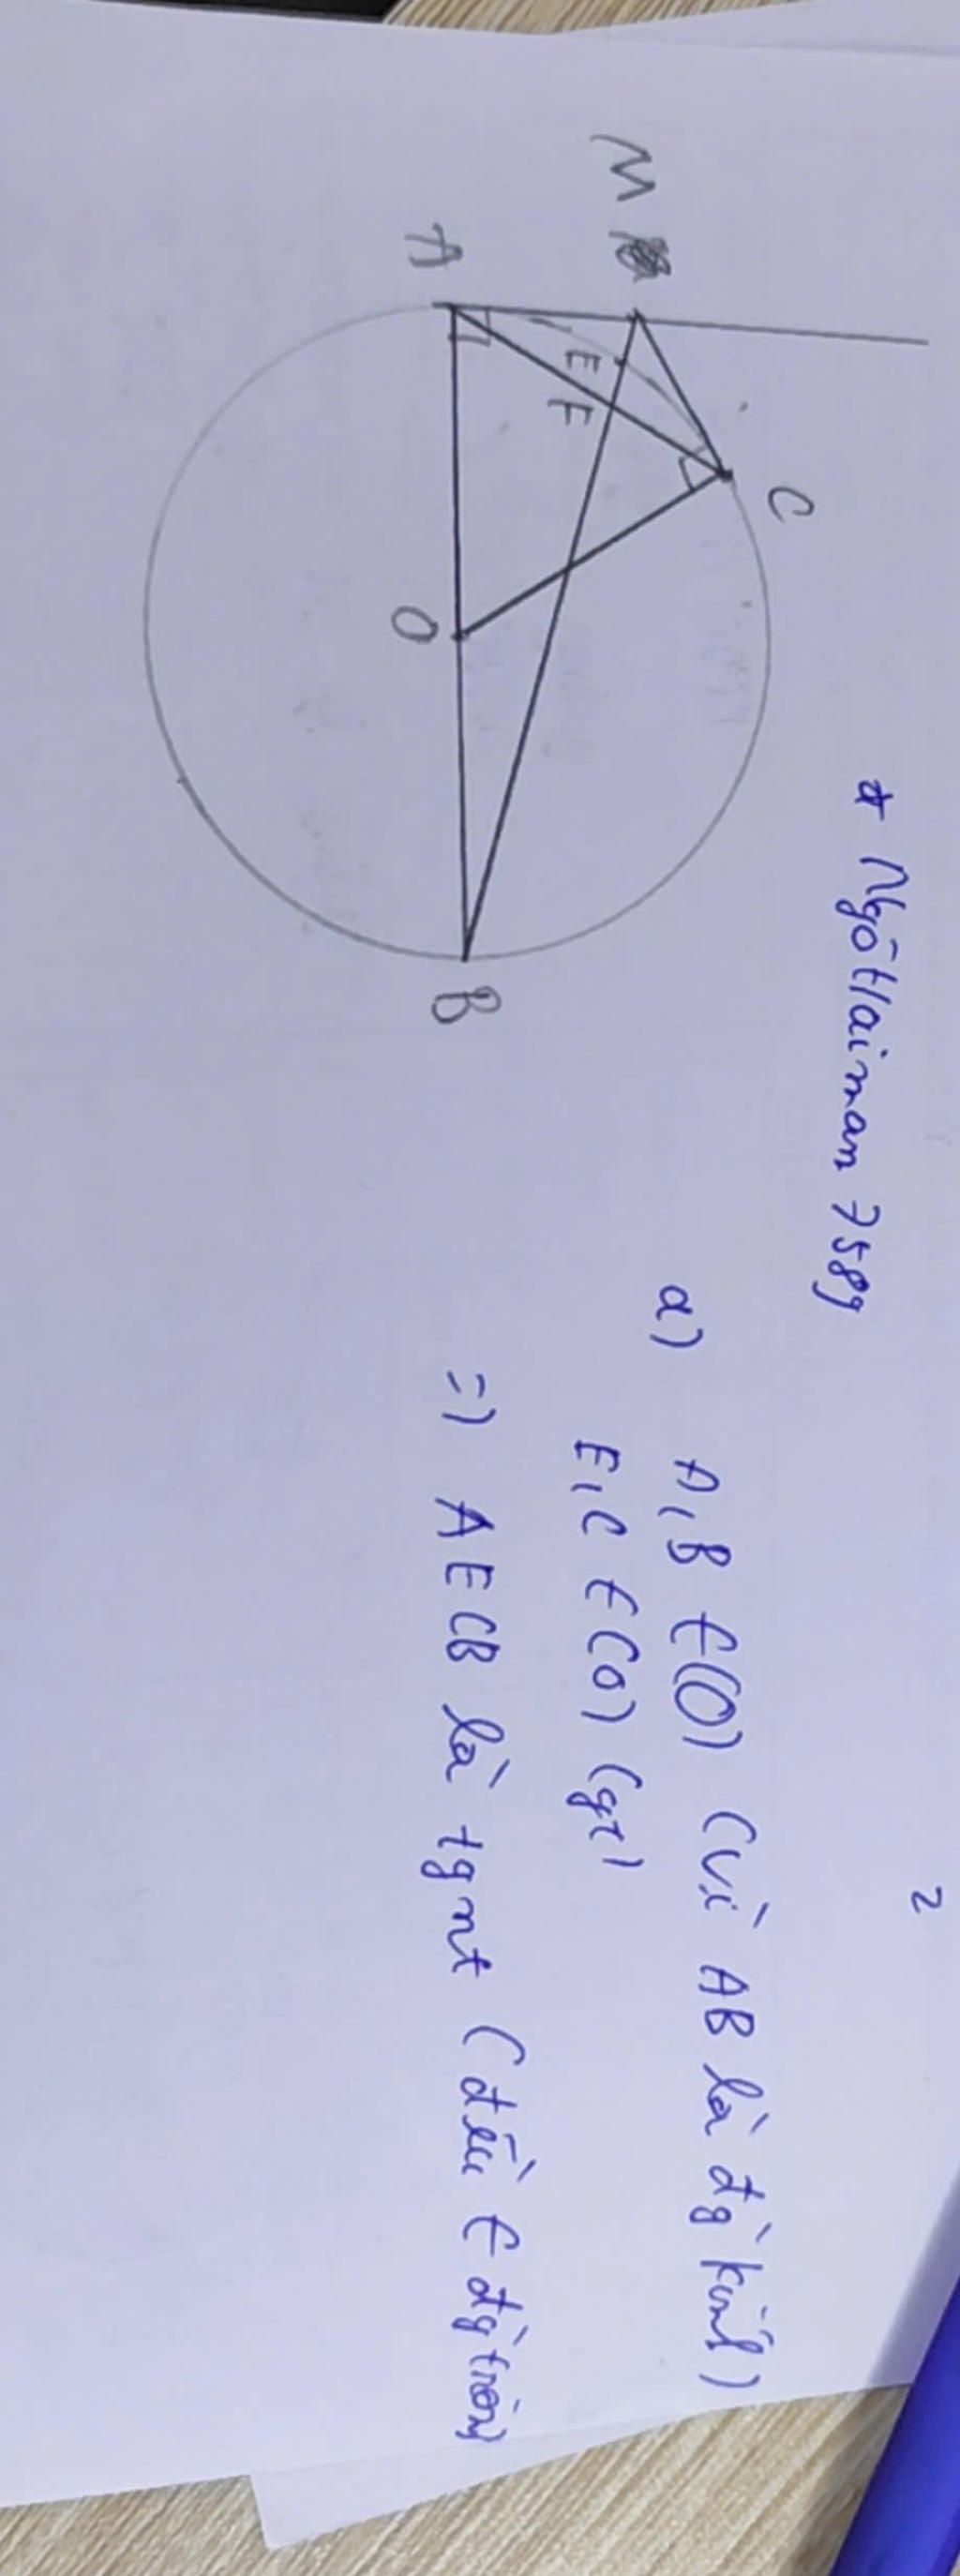 M
A
E
F
C
O
B
* Ngôtlaiman 7589
2
a) A, B ∈ (O) (vì AB là đg̀ kính)
E, C ∈ (O) (gt)
=) AECB là tgnt (đều ∈ đg̀ tròn)